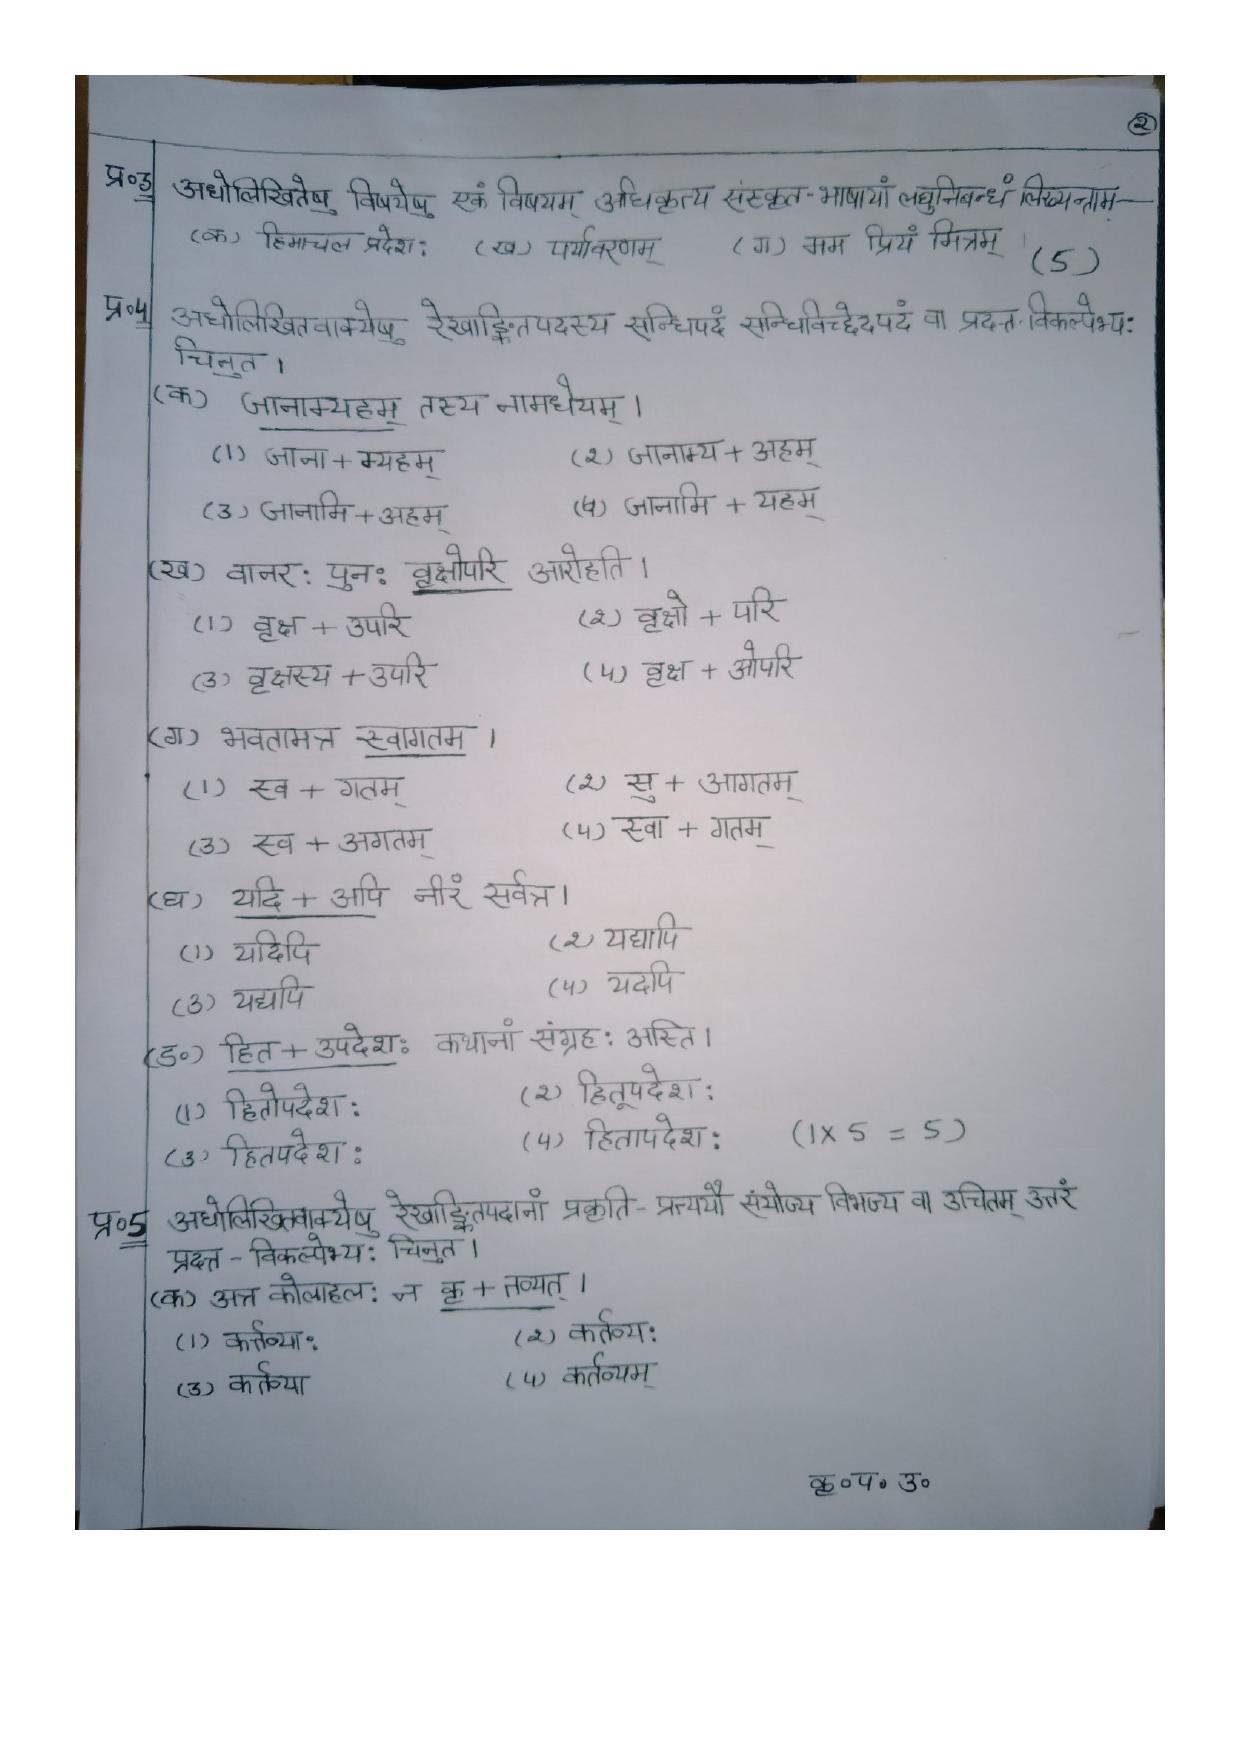 २
प्र॰3 अधोलिखितेषु विषयेषु एकं विषयम् अधिकृत्य संस्कृत-भाषायां लघुनिबन्धं लिख्यन्ताम्—
(क) हिमाचल प्रदेशः (ख) पर्यावरणम् (ग) मम प्रियं मित्रम् (5)
प्र॰4 अधोलिखितवाक्येषु रेखाङ्कितपदस्य सन्धिपदं सन्धिविच्छेदपदं वा प्रदत्त-विकल्पेभ्यः
चिनुत।
(क) जानाम्यहम् तस्य नामधेयम्।
(1) जाना + म्यहम् (2) जानाम्य + अहम्
(3) जानामि + अहम् (4) जानामि + यहम्
(ख) वानरः पुनः वृक्षोपरि आरोहति।
(1) वृक्ष + उपरि (2) वृक्षो + परि
(3) वृक्षस्य + उपरि (4) वृक्ष + ओपरि
(ग) भवतामत्र स्वागतम।
(1) स्व + गतम् (2) सु + आगतम्
(3) स्व + अगतम् (4) स्वा + गतम्
(घ) यदि + अपि नीरं सर्वत्र।
(1) यदिपि (2) यद्यापि
(3) यद्यपि (4) यदपि
(ड॰) हित + उपदेशः कथानां संग्रहः अस्ति।
(1) हितोपदेशः (2) हितूपदेशः
(3) हितपदेशः (4) हितापदेशः (1×5 = 5)
प्र॰5 अधोलिखितवाक्येषु रेखाङ्कितपदानां प्रकृति-प्रत्ययौ संयोज्य विभज्य वा उचितम् उत्तरं
प्रदत्त-विकल्पेभ्यः चिनुत।
(क) अत्र कोलाहलः न कृ + तव्यत्।
(1) कर्त्तव्याः (2) कर्तव्यः
(3) कर्तव्या (4) कर्तव्यम्
कृ॰प॰उ॰